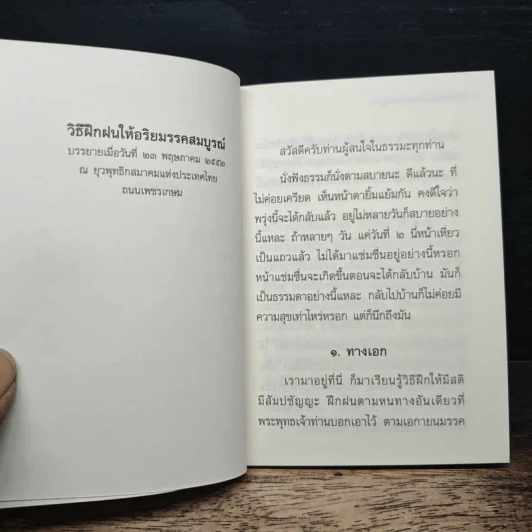 วิธีฝึกฝนให้อริยมรรคสมบูรณ์
บรรยายเมื่อวันที่ ๒๓ พฤษภาคม ๒๕๕๒
ณ ยุวพุทธิกสมาคมแห่งประเทศไทย
ถนนเพชรเกษม
สวัสดีครับท่านผู้สนใจในธรรมะทุกท่าน
นั่งฟังธรรมก็นั่งตามสบายนะ ดีแล้วนะ ที่
ไม่ค่อยเครียด เห็นหน้าตายิ้มแย้มกัน คงดีใจว่า
พรุ่งนี้จะได้กลับแล้ว อยู่ไม่หลายวันก็สบายอย่าง
นี้แหละ ถ้าหลายๆ วัน แค่วันที่ ๒ นี่หน้าเหี่ยว
เป็นแถวแล้ว ไม่ได้มาแช่มชื่นอยู่อย่างนี้หรอก
หน้าแช่มชื่นจะเกิดขึ้นตอนจะได้กลับบ้าน มันก็
เป็นธรรมดาอย่างนี้แหละ กลับไปบ้านก็ไม่ค่อยมี
ความสุขเท่าไหร่หรอก แต่ก็นึกถึงมัน
๑. ทางเอก
เรามาอยู่ที่นี่ ก็มาเรียนรู้วิธีฝึกให้มีสติ
มีสัมปชัญญะ ฝึกฝนตามหนทางอันเดียวที่
พระพุทธเจ้าท่านบอกเอาไว้ ตามเอกายนมรรค